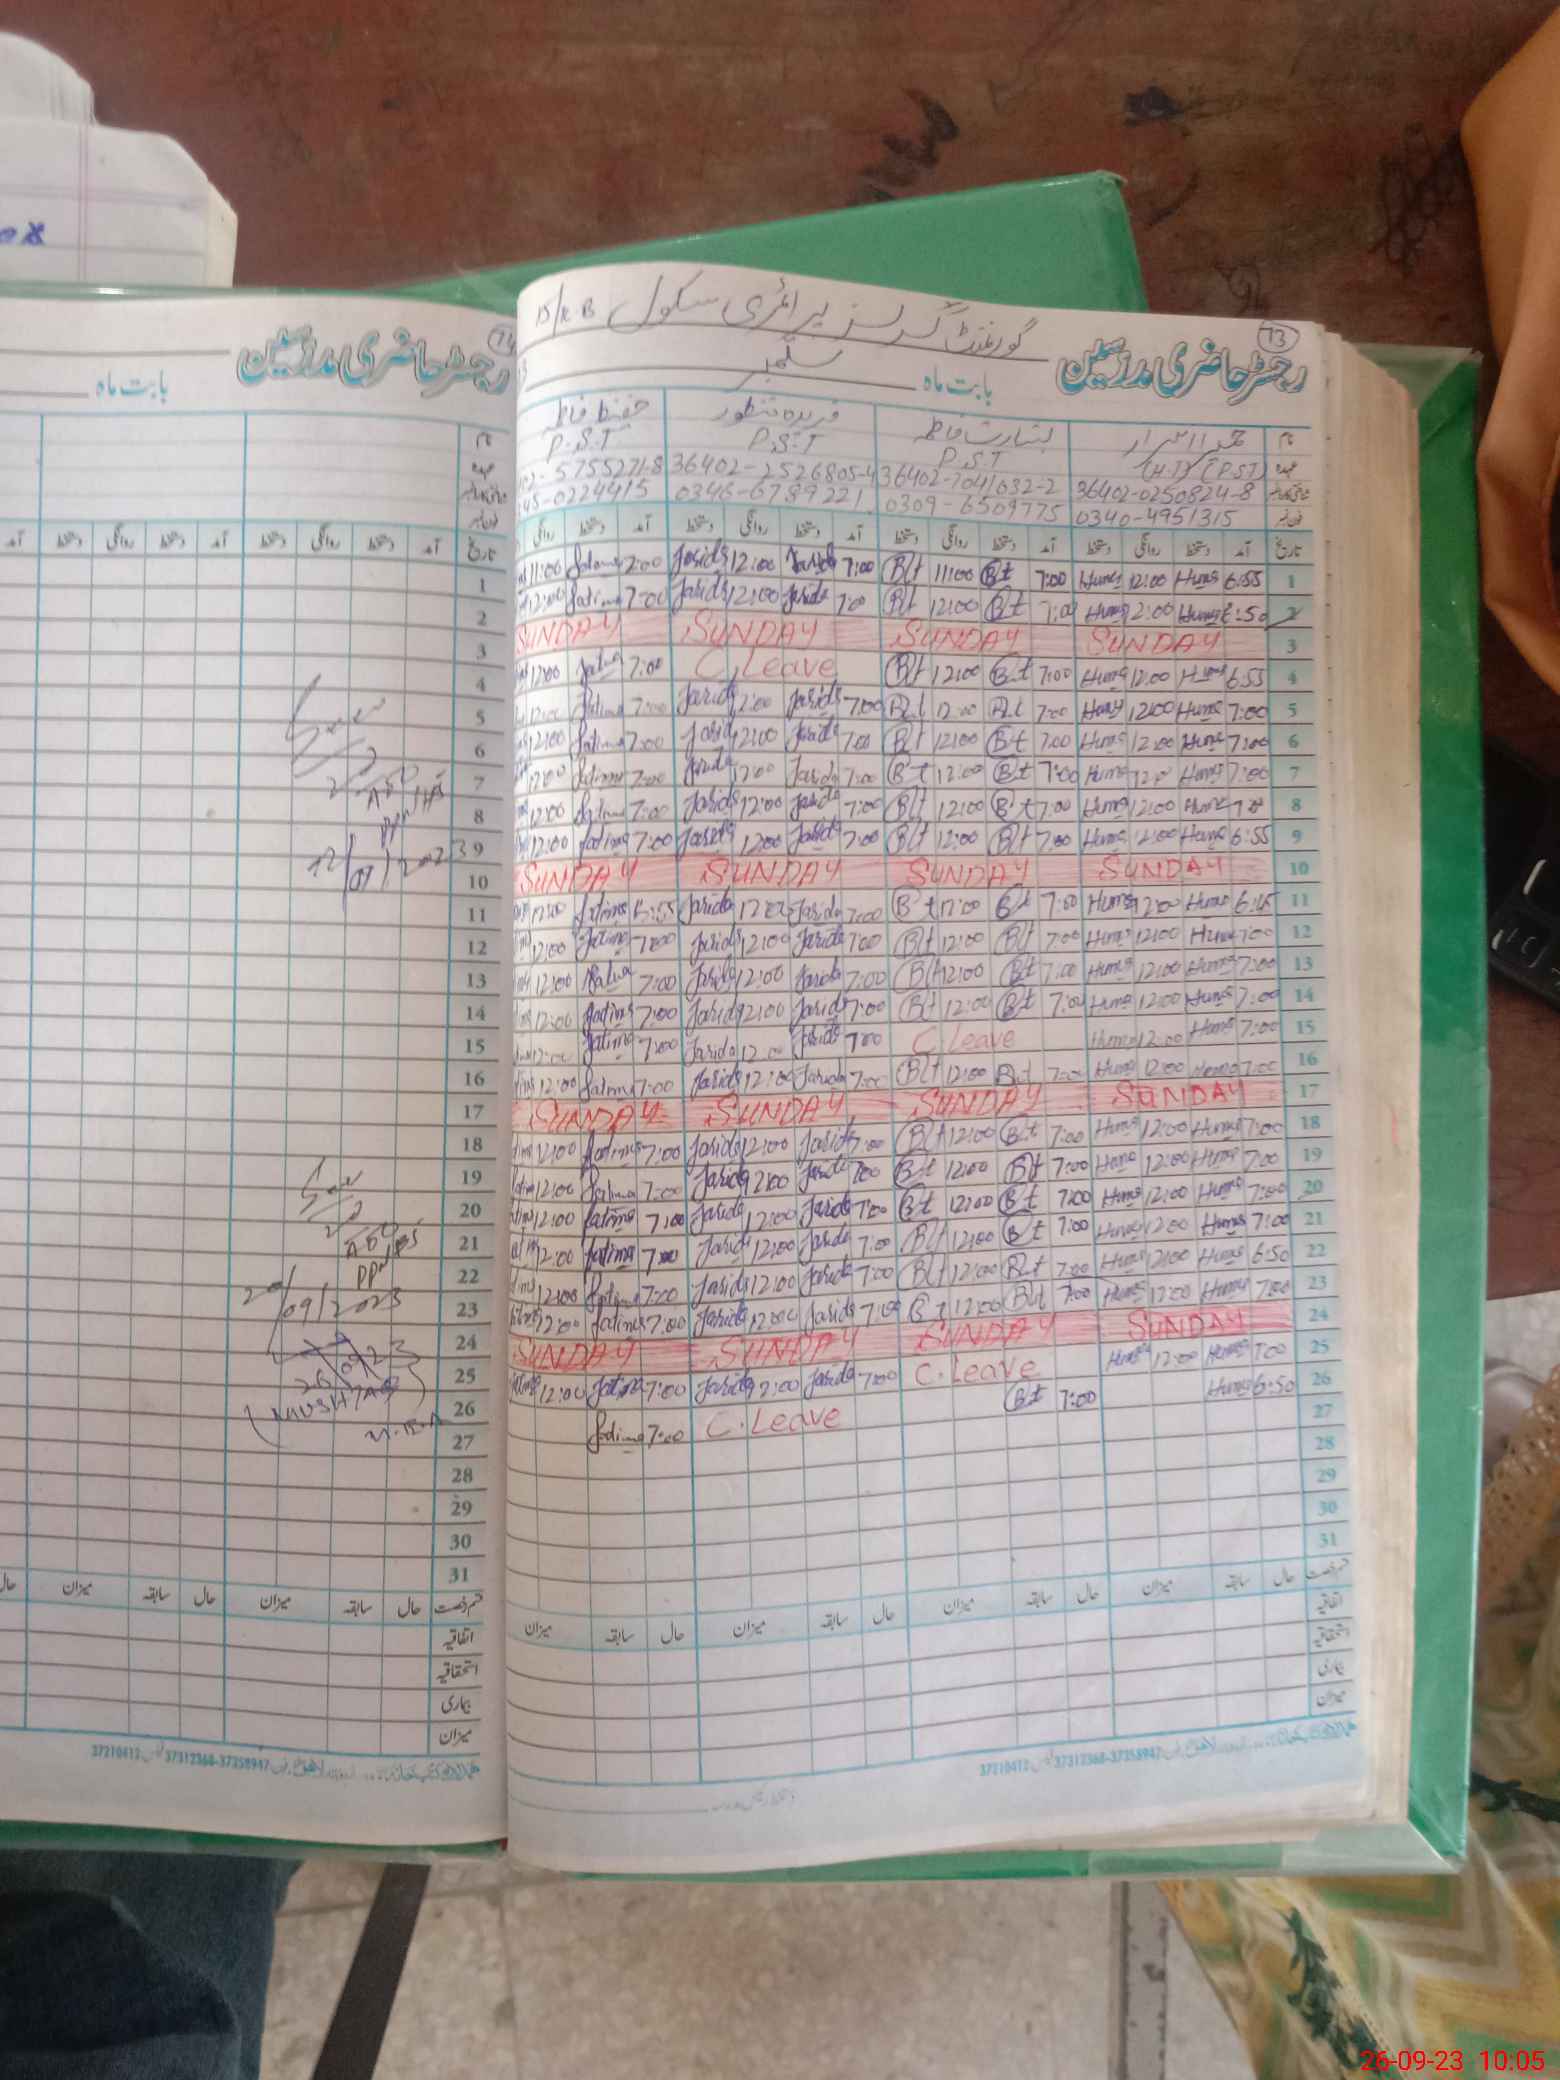 73
رجسٹر حاضری مدرسین
گورنمنٹ گرلز پرائمری سکول 15/K.B
بابت ماہ ستمبر
نام
فریدہ منظور
بشارت فاطمہ
عہدہ
P.S.T
P.S.T
P.S.T
(H.T) (P.S.T)
5755271-8
36402-2526805-4
36402-7041032-2
36402-0250824-8
45-0224415
0346-6789221
0309-6509775
0340-4951315
تاریخ آمد دستخط روانگی دستخط آمد دستخط روانگی دستخط آمد دستخط روانگی دستخط آمد دستخط روانگی
1 6:55 Huma 12:00 Huma 7:00 Bt 11:00 Bt 7:00 Farida 12:00 Farida 7:00 Fatima 11:00
2 6:50 Huma 12:00 Huma 7:00 Bt 12:00 Bt 7:00 Farida 12:00 Farida 7:00 Fatima 12:00
3 SUNDAY SUNDAY SUNDAY SUNDAY
4 6:55 Huma 12:00 Huma 7:00 Bt 12:00 Bt C.Leave 7:00 Fatima 12:00
5 7:00 Huma 12:00 Huma 7:00 Bt 12:00 Bt 7:00 Farida 12:00 Farida 7:00 Fatima 12:00
6 7:00 Huma 12:00 Huma 7:00 Bt 12:00 Bt 7:00 Farida 12:00 Farida 7:00 Fatima 12:00
7 7:00 Huma 12:00 Huma 7:00 Bt 12:00 Bt 7:00 Farida 12:00 Farida 7:00 Fatima 12:00
8 7:00 Huma 12:00 Huma 7:00 Bt 12:00 Bt 7:00 Farida 12:00 Farida 7:00 Fatima 12:00
9 6:55 Huma 12:00 Huma 7:00 Bt 12:00 Bt 7:00 Farida 12:00 Farida 7:00 Fatima 12:00
10 SUNDAY SUNDAY SUNDAY SUNDAY
11 6:45 Huma 12:00 Huma 7:00 Bt 12:00 Bt 7:00 Farida 12:00 Farida Fatima 12:00
12 7:00 Huma 12:00 Huma 7:00 Bt 12:00 Bt 7:00 Farida 12:00 Farida 7:00 Fatima 12:00
13 7:00 Huma 12:00 Huma 7:00 Bt 12:00 Bt 7:00 Farida 12:00 Farida 7:00 Fatima 12:00
14 7:00 Huma 12:00 Huma 7:00 Bt 12:00 Bt 7:00 Farida 12:00 Farida 7:00 Fatima 12:00
15 7:00 Huma 12:00 Huma C.Leave 7:00 Farida 12:00 Farida 7:00 Fatima 12:00
16 7:00 Huma 12:00 Huma 7:00 Bt 12:00 Bt 7:00 Farida 12:00 Farida 7:00 Fatima 12:00
17 SUNDAY SUNDAY SUNDAY SUNDAY
18 7:00 Huma 12:00 Huma 7:00 Bt 12:00 Bt 7:00 Farida 12:00 Farida 7:00 Fatima 12:00
19 7:00 Huma 12:00 Huma 7:00 Bt 12:00 Bt 7:00 Farida 12:00 Farida 7:00 Fatima 12:00
20 7:00 Huma 12:00 Huma 7:00 Bt 12:00 Bt 7:00 Farida 12:00 Farida 7:00 Fatima 12:00
21 7:00 Huma 12:00 Huma 7:00 Bt 12:00 Bt 7:00 Farida 12:00 Farida 7:00 Fatima 12:00
22 6:50 Huma 12:00 Huma 7:00 Bt 12:00 Bt 7:00 Farida 12:00 Farida 7:00 Fatima 12:00
23 7:00 Huma 12:00 Huma 7:00 Bt 12:00 Bt 7:00 Farida 12:00 Farida 7:00 Fatima 12:00
24 SUNDAY SUNDAY SUNDAY SUNDAY
25 7:00 Huma 12:00 Huma C.Leave 7:00 Farida 12:00 Farida 7:00 Fatima 12:00
26 6:50 Huma 7:00 Bt C.Leave 7:00 Fatima
27
28
29
30
31
قسم رخصت حال سابقہ میزان حال سابقہ میزان حال سابقہ میزان حال سابقہ میزان
اتفاقیہ
استحقاقیہ
بیماری
میزان
37210412 37312368-37358947
74
رجسٹر حاضری مدرسین
بابت ماہ
نام
عہدہ
تاریخ آمد دستخط روانگی دستخط آمد دستخط روانگی دستخط آمد
1
2
3
4
5
6
7
8
9
10
11
12
13
14
15
16
17
18
19
20
21
22
23
24
25
26
27
28
29
30
31
12/09/2023
20/09/2023
260923
(MUSHTAQ)
قسم رخصت حال سابقہ میزان حال سابقہ میزان حال
اتفاقیہ
استحقاقیہ
بیماری
میزان
37210412 37312368-37358947
26-09-23 10:05